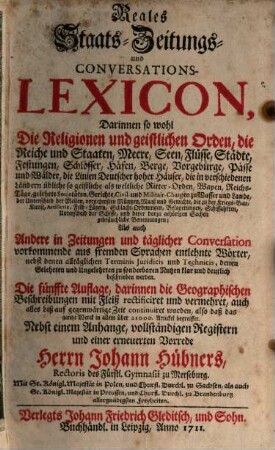 Reales
Staats- Zeitungs-
und
CONVERSATIONS-
LEXICON,
Darinnen so wohl
Die Religionen und geistlichen Orden, die
Reiche und Staaten, Meere, Seen, Flüsse, Städte,
Festungen, Schlösser, Häfen, Berge, Vorgebirge, Pässe
und Wälder, die Linien Deutscher hoher Häuser, die in verschiedenen
Ländern übliche so geistliche als weltliche Ritter-Orden, Wapen, Reichs-
Täge, gelehrte Societäten, Gerichte, Civil- und Militair-Chargen zu Wasser und Lande,
der Unterscheid der Meilen, vornehmsten Müntzen, Maaß und Gewichte, die zu der Kriegs-Bau-
Kunst, Artillerie, Feld-Lägern, Schlacht-Ordnungen, Belagerungen, Schiffahrten,
Unterscheid der Schiffe, und derer darzu gehörigen Sachen
gebräuchliche Benennungen;
Als auch
Andere in Zeitungen und täglicher Conversation
vorkommende aus fremden Sprachen entlehnte Wörter,
nebst denen alltäglichen Terminis Juridicis und Technicis, denen
Gelehrten und Ungelehrten zu sonderbaren Nutzen klar und deutlich
beschrieben werden.
Die fünffte Auflage, darinnen die Geographischen
Beschreibungen mit Fleiß rectificiret und vermehret, auch
alles biß auf gegenwärtige Zeit continuiret worden, also daß das
gantze Werck in allem über Articul begreifft.
Nebst einem Anhange, vollständigen Registern
und einer erneuerten Vorrede
Herrn Johann Hübners,
Rectoris des Fürstl. Gymnasii zu Merseburg.
Mit Sr. Königl. Majestät in Polen, und Churfl. Durchl. zu Sachsen, als auch
Sr. Königl. Majestät in Preussen, und Churfl. Durchl. zu Brandenburg
allergnädigsten Freyheiten.
Verlegts Johann Friedrich Gleditsch, und Sohn.
Buchhändl. in Leipzig, Anno 1711.